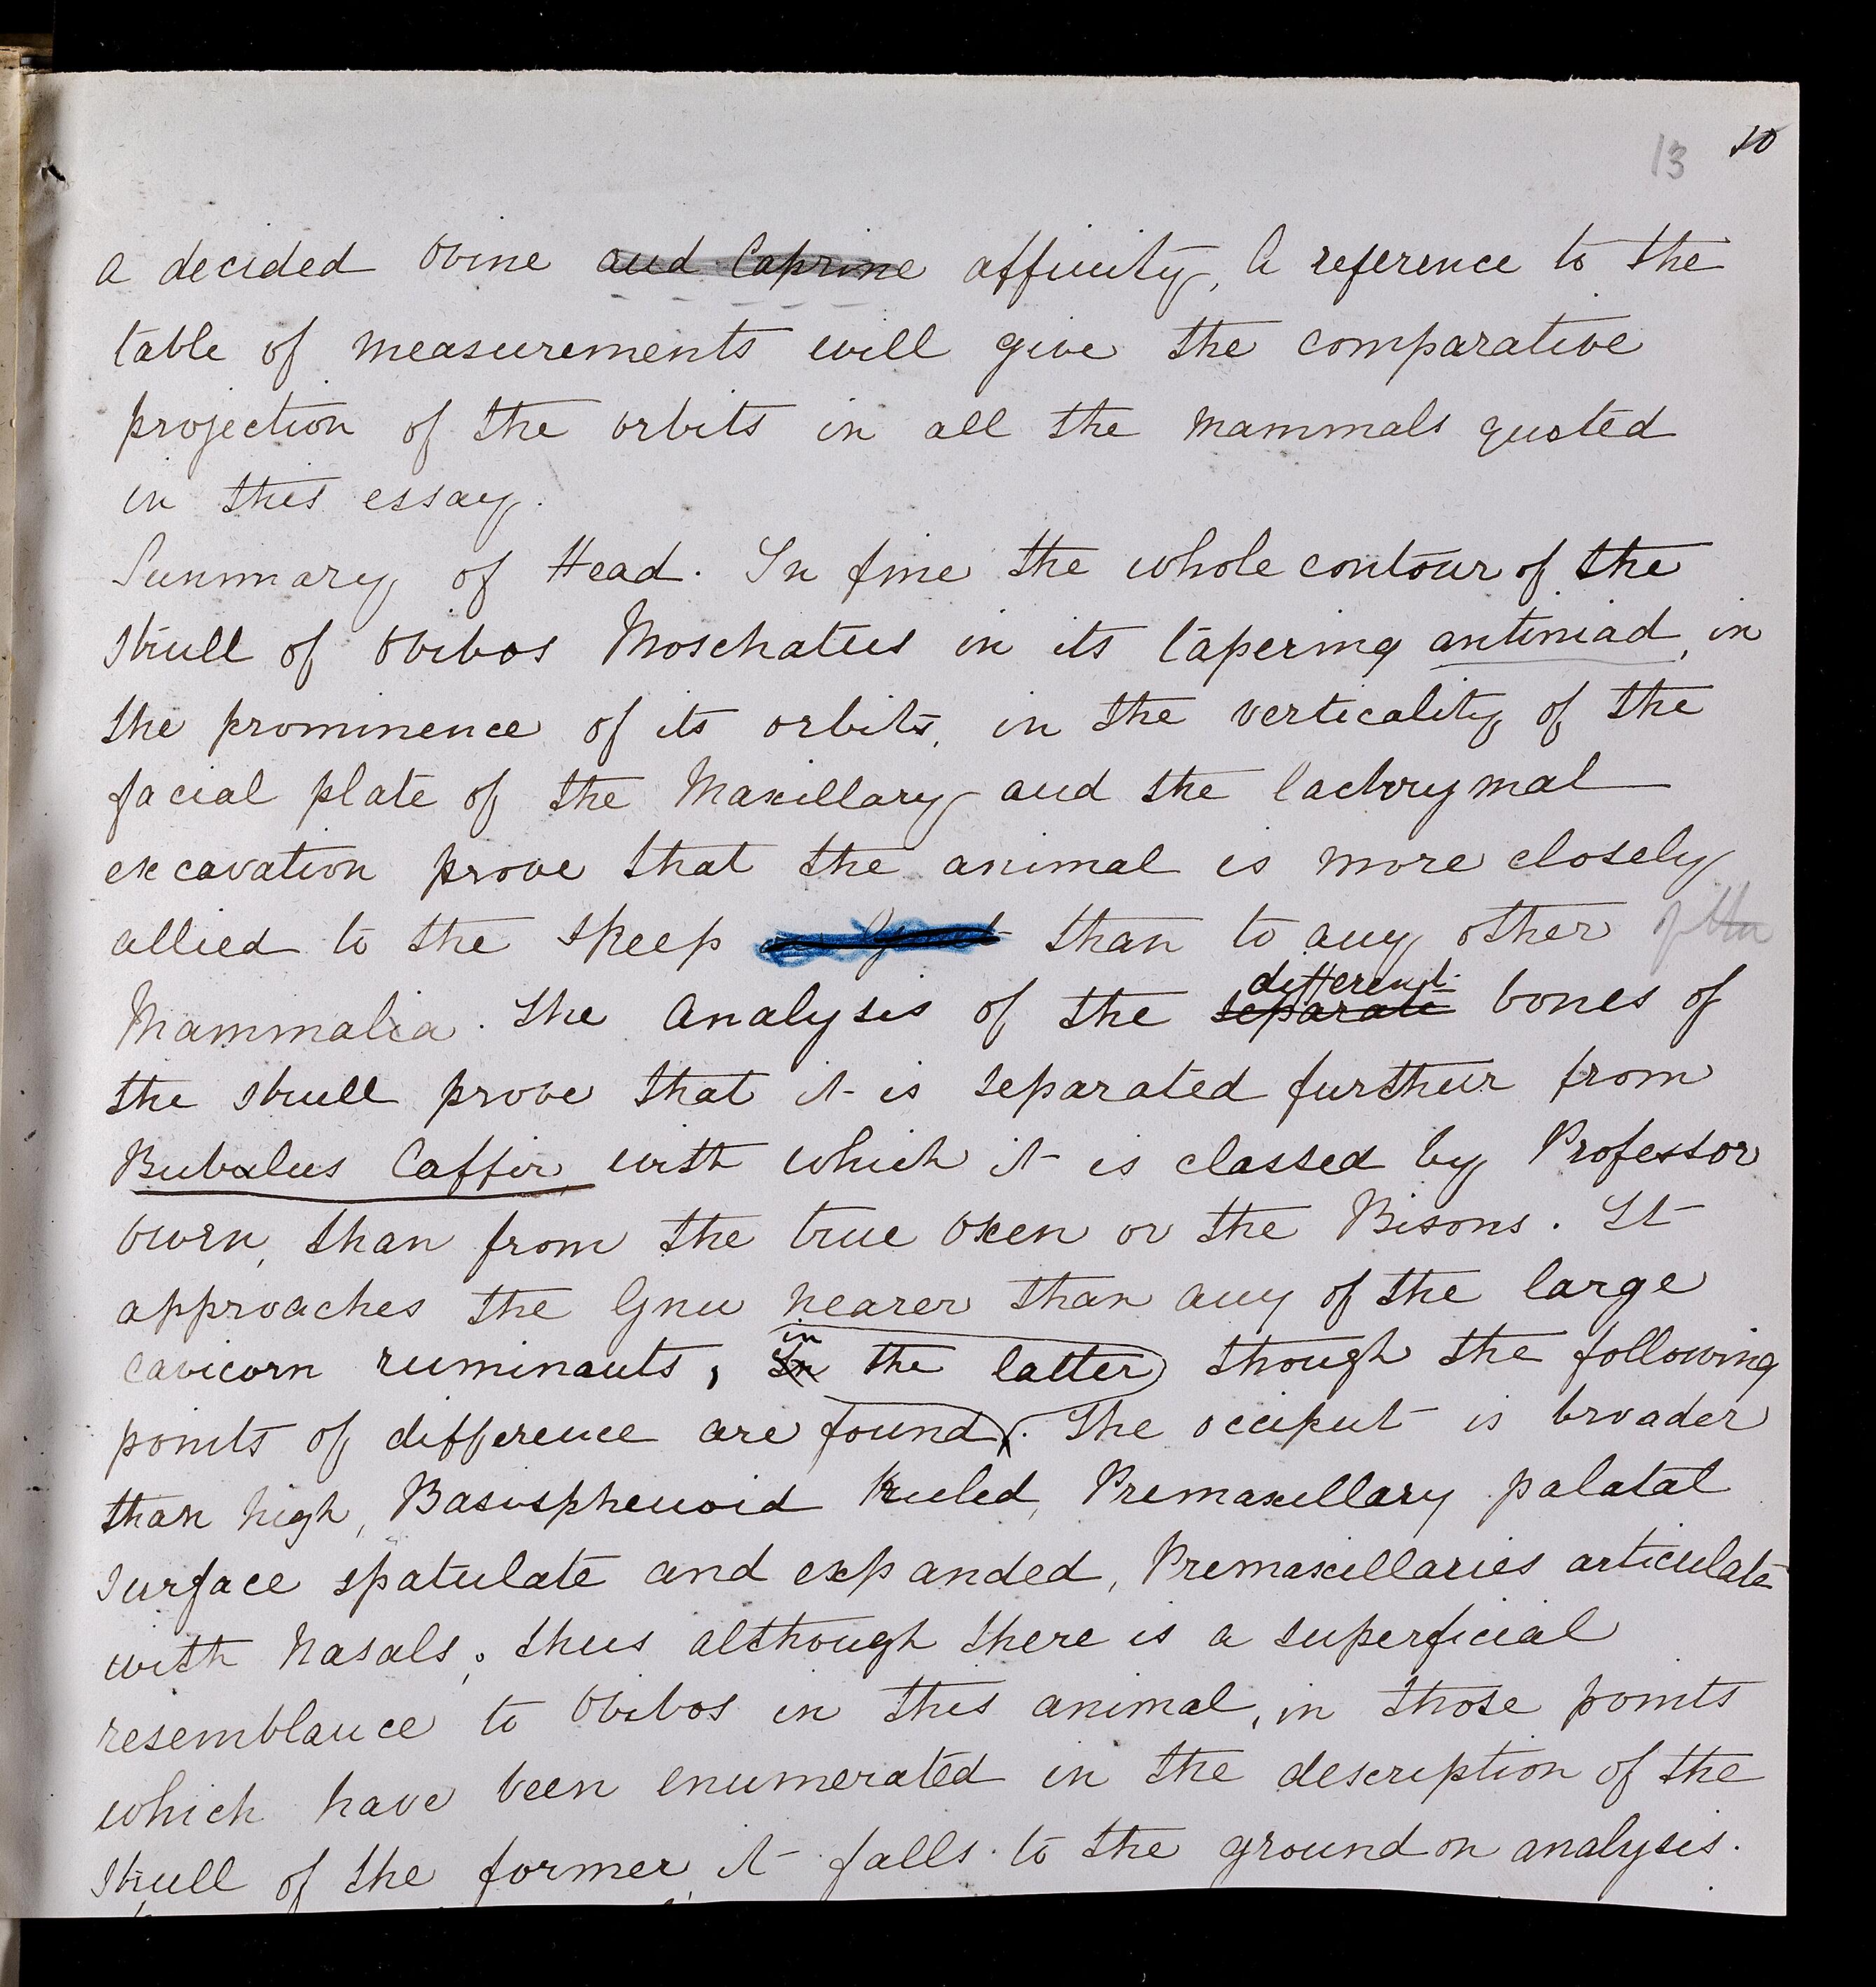 13 10
a decided Ovine and Caprine affinity, A reference to the
table of measurements will give the comparative
projection of the orbits in all the mammals quoted
in this essay.
Summary of Head. In fine the whole contour of the
skull of Ovibos Moschatus in its tapering antiniad, in
the prominence of its orbits, in the verticality of the
facial plate of the Maxillary and the lachrymal
excavation prove that the animal is more closely
allied to the sheep than to any other of the
different
Mammalia. The Analysis of the separate bones of
the skull prove that it is separated further from
Bubalus Caffir, with which it is classed by Professor
Owen, than from the true Oxen or the Bisons. It
approaches the Gnu nearer than any of the large
in
cavicorn ruminants, In the latter though the following
points of difference are found. The occiput is broader
than high, Basisphenoid keeled, Premaxillary palatal
surface spatulate and expanded, Premaxillaries articulate
with Nasals; thus although there is a superficial
resemblance to Ovibos in this animal, in those points
which have been enumerated in the description of the
skull of the former, it falls to the ground on analysis.